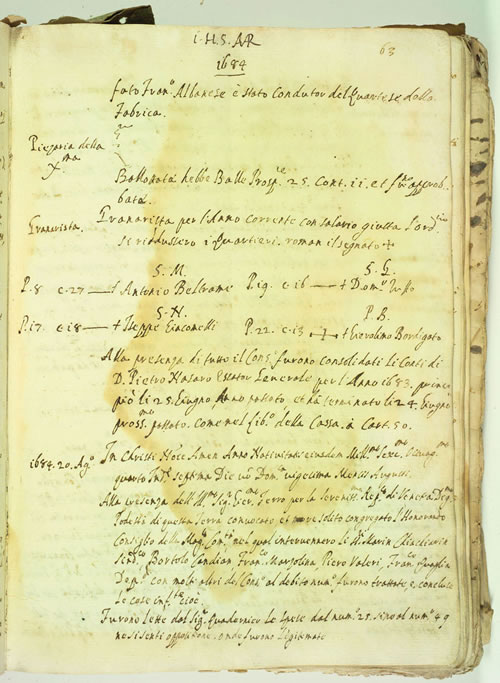 i. H. S. AR
63
1684
fato Fran.º Albanese è stato Condutor del Quartese della
Fabrica.
Piezaria della
X.ma
Ballottata hebbe Balle Prosp.e 25. Cont. ii. et fù approb-
bata.
Granarista. Granarista per l'Anno corrente con salario giusta l'ord.
si riddussero i Quartieri. roman il segnato +
S. M. S. L.
P. 8 c. 27 — + Antonio Beltrame P. 19. c. 16 — + Dom.º
S. N. P. B.
P. 17. c. 18 — + Iseppe Giacomelli P. 22. c. 13 — + Gierolimo Bordigato
Alla presenza di tutto il Cons.º furono Consolidati li Conti di
D. Pietro Nasaro Esator Generale per l'Anno 1683. princi-
piò li 25. Giugno Anno passato, et hà terminato li 24. Giugno
pross.mo passato. come nel lib.º della Cassa. à Cart. 50.
1684. 20. Ag.º In Christi Noie Amen Anno Nativitatis eiusdem Mill.mo Sexc.mo Octuag.mo
quarto Ind.e septima Die v.º Dom.º vigesima Mensis Augusti
Alla presenza dell' Ill.mo Sig.r Gier.mo per la Sereniss.ma Rep.ca di Venetia Dig.mo
Podestà di questa Terra convocato et more solito congregato l'Honorando
Conseglio della Mag.ca Com.tà nel qual intervennero li SS.ri Marin Chiericin
Sind.co Bortolo Candian Fran.co Marzolina Piero Valeri, Fran.co
Dep.ti con molti altri del Cons.º al debito num.º furono trattate, e concluse
le cose inf.tte cioè
Furono lette dal Sig.r Quadernier le spese dal num.º 25. sino al num.º 49
ne si sentì oppositione, onde furono legitimate